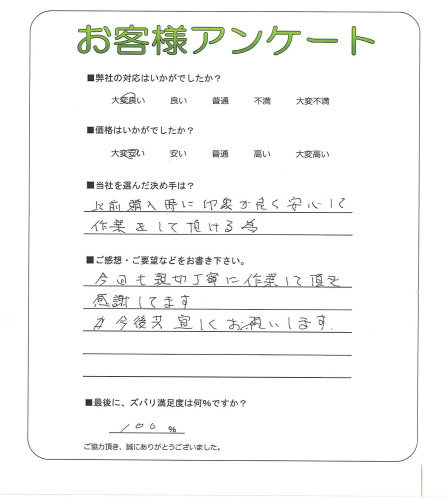 お客様アンケート
■弊社の対応はいかがでしたか？
大変良い 良い 普通 不満 大変不満
■価格はいかがでしたか？
大変安い 安い 普通 高い 大変高い
■当社を選んだ決め手は？
以前購入時に印象が良く安心して
作業をして頂ける為
■ご感想・ご要望などをお書き下さい。
今回も親切丁寧に作業して頂き
感謝してます
今後共宜しくお願いします.
■最後に、ズバリ満足度は何％ですか？
100 %
ご協力頂き、誠にありがとうございました。